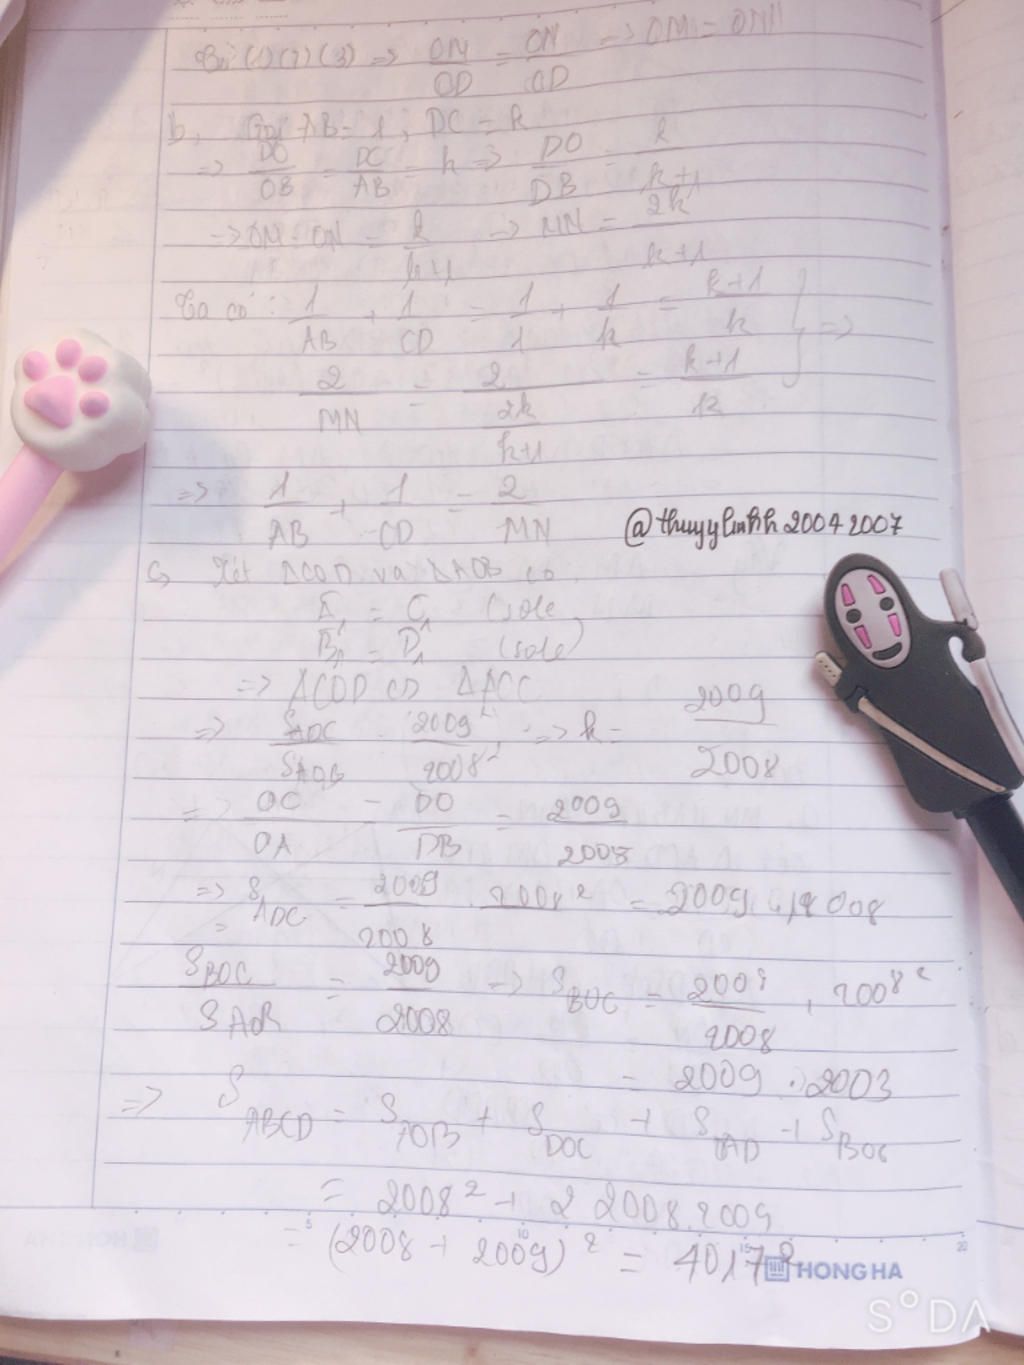 Từ (1)(2)(3) => OM/OD = ON/OD => OM = ON
b, Gọi AB = 1, DC = k
=> DO/OB = DC/AB = k => DO/DB = k/k+1
=> OM = ON = k/k+1 => MN = 2k/k+1
Ta có: 1/AB + 1/CD = 1/1 + 1/k = k+1/k } =>
2/MN = 2/(2k/k+1) = k+1/k
=> 1/AB + 1/CD = 2/MN
@thuyylinhh20042007
c, Xét ΔCOD và ΔAOB có
A₁ = C₁ (sole
B₁ = D₁ (sole)
=> ΔCOD ∽
=> S_ADC/S_AOB = 2009²/2008² => k = 2009/2008
=> OC/OA = DO/DB = 2009/2008
=> S_ADC = 2009/2008 . 2008² = 2009.
S_BOC/S_AOB = 2009/2008 => S_BOC = 2009/2008 . 2008²
= 2009 . 2003
=> S_ABCD = S_AOB + S_DOC + S + S_BOC
= 2008² + 2 2008.2009
= (2008 + 2009)² = 4017²
5 10 15 20
HONG HA
SODA